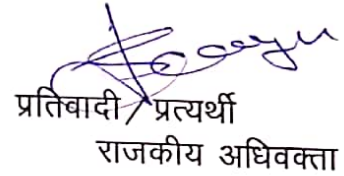 प्रतिवादी / प्रत्यर्थी
राजकीय अधिवक्ता